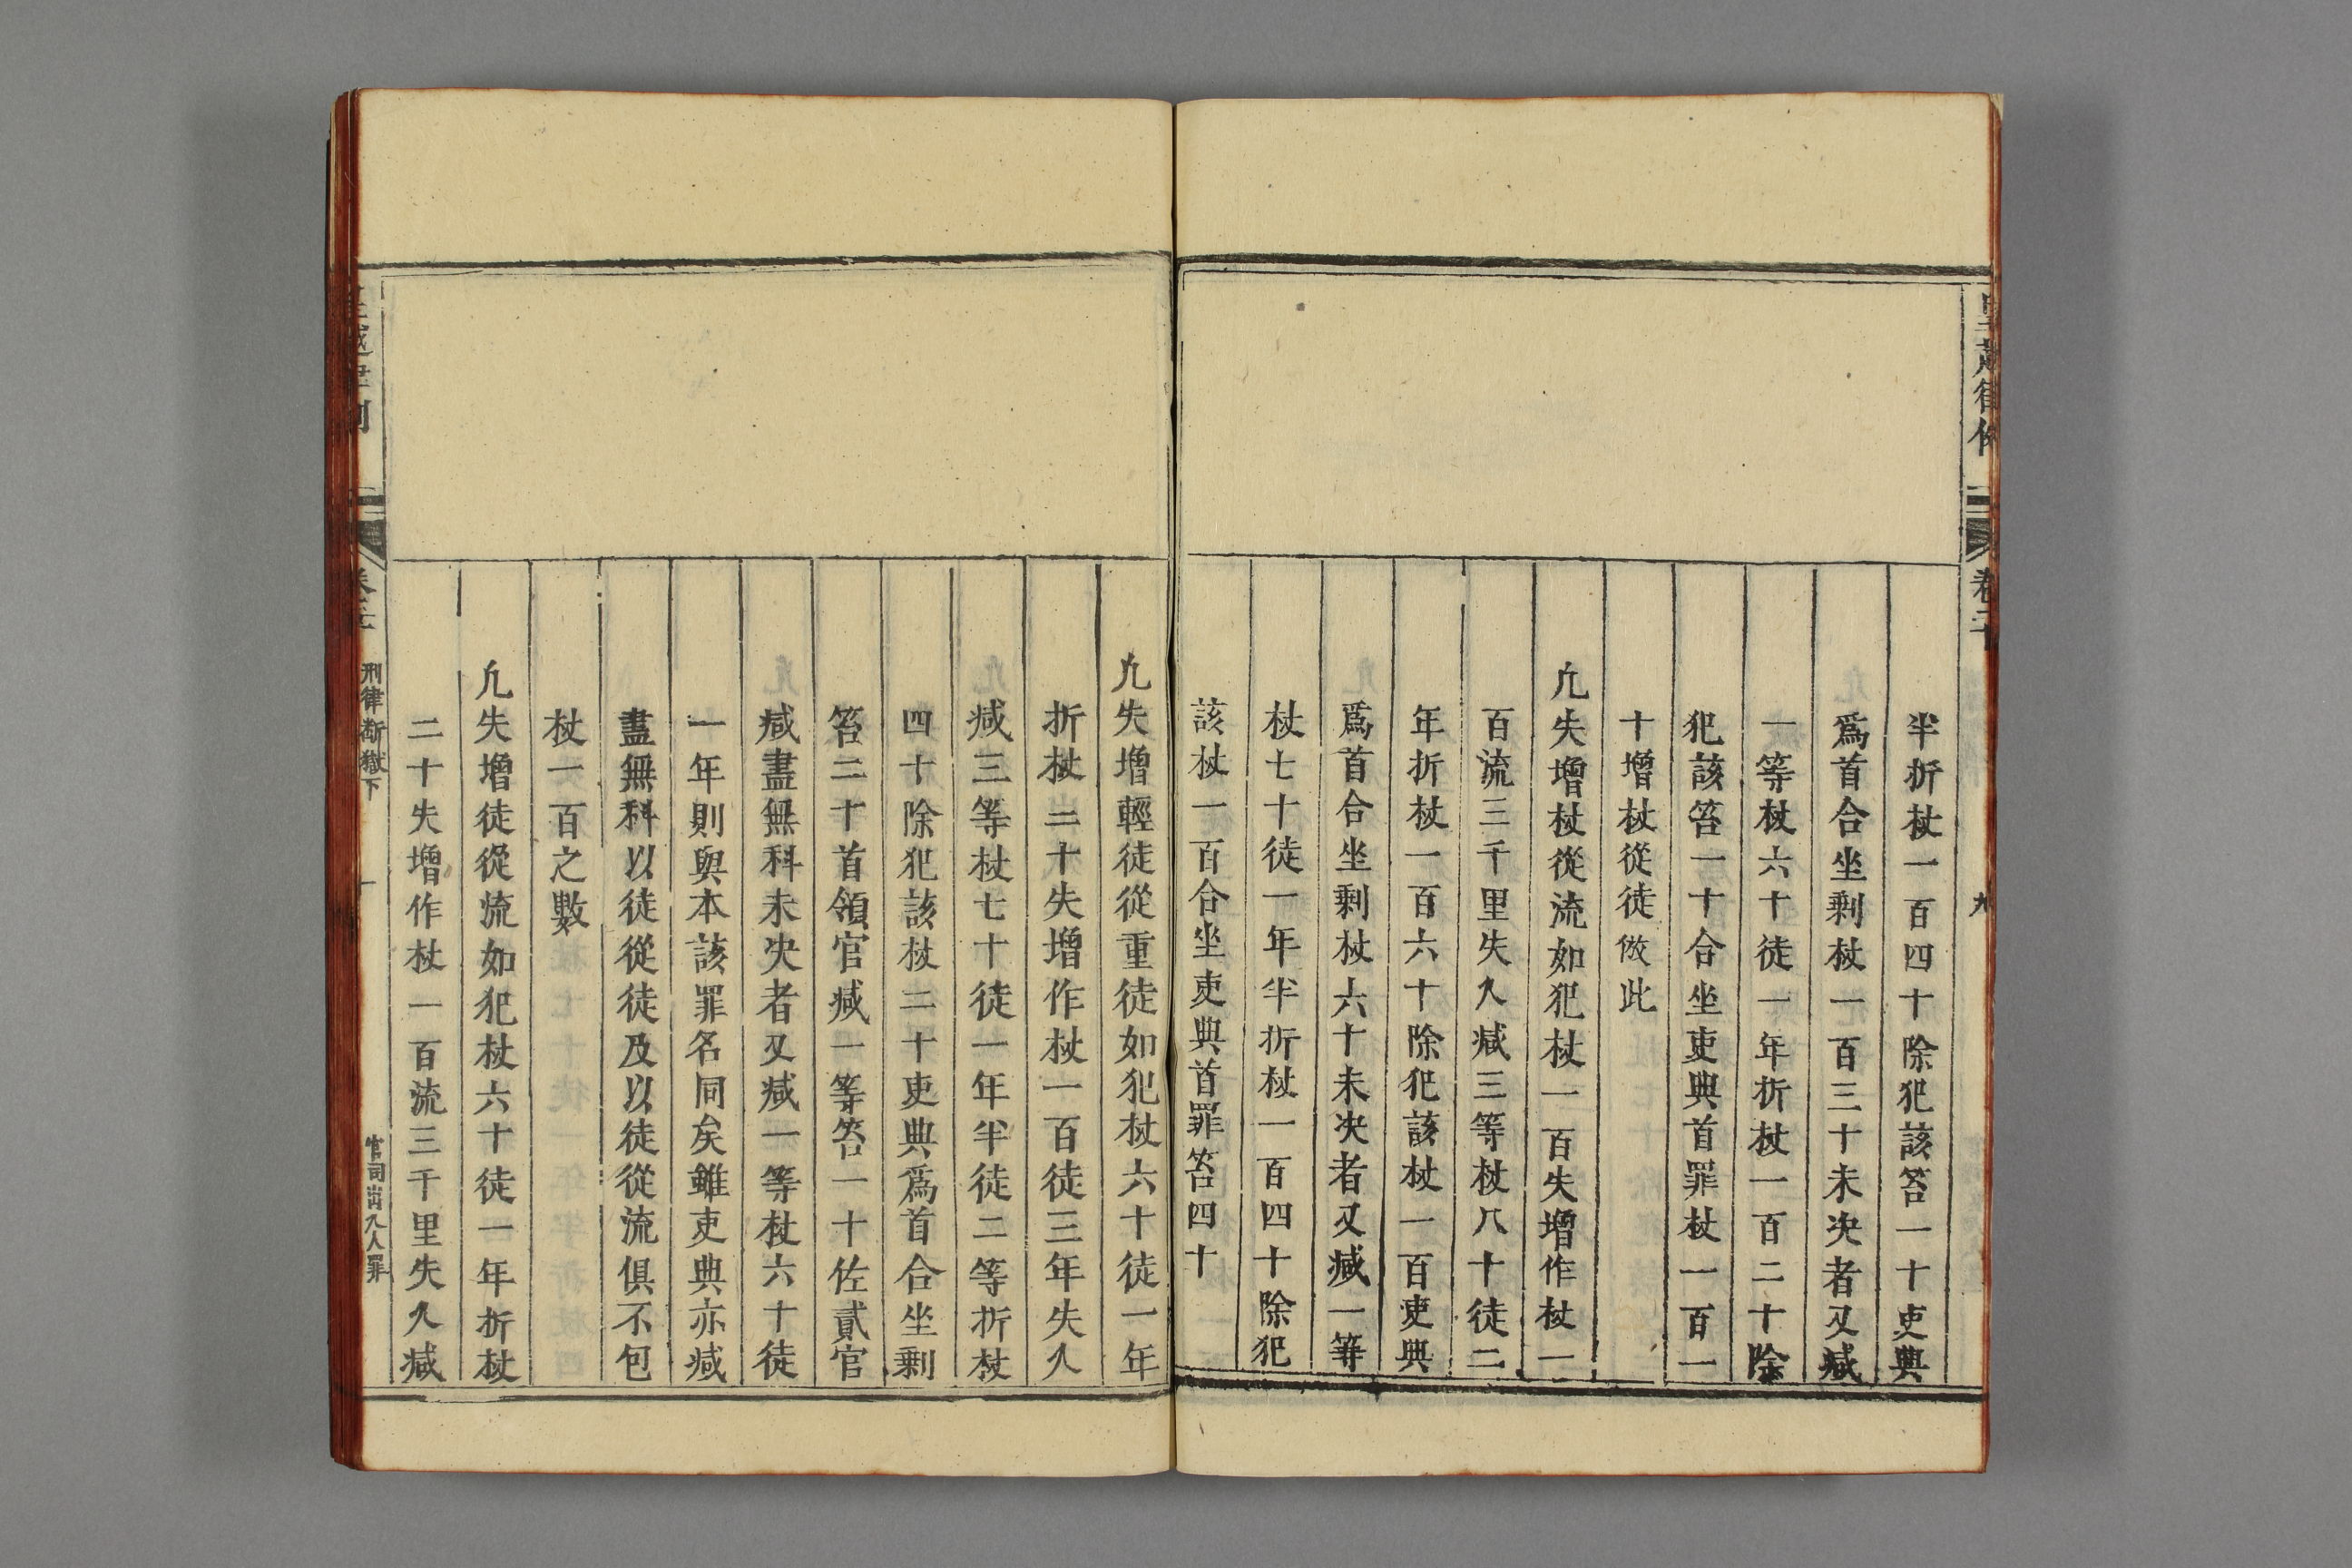 皇越律例
卷二十
九
半折杖一百四十除犯該笞一十吏典
爲首合坐剩杖一百三十未决者又减
一等杖六十徒一年折杖一百二十除
犯該笞一十合坐吏典首罪杖一百一
十增杖從徒倣此
凢失增杖從流如犯杖一百失增作杖一
百流三千里失入减三等杖八十徒二
年折杖一百六十除犯該杖一百吏典
爲首合坐剩杖六十未决者又减一等
杖七十徒一年半折杖一百四十除犯
該杖一百合坐吏典首罪笞四十
凢失增輕徒從重徒如犯杖六十徒一年
折杖二十失增作杖一百徒三年失入
减三等杖七十徒一年半徒二等折杖
四十除犯該杖二十吏典爲首合坐剩
笞二十首領官减一等笞一十佐貳官
减盡無科未决者又减一等杖六十徒
一年則與本該罪名同矣雖吏典亦减
盡無科以徒從徒及以徒從流俱不包
杖一百之數
凢失增徒從流如犯杖六十徒一年折杖
二十失增作杖一百流三千里失入减
刑律斷獄下
官司出入人罪